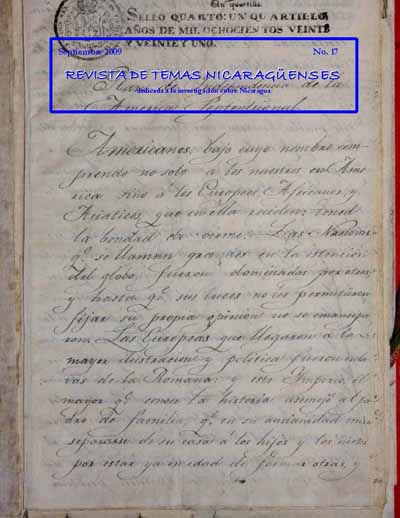 Un quartillo.
SELLO QUARTO: UN QUARTILLO
AÑOS DE MIL OCHOCIENTOS VEINTE
Y VEINTE Y UNO.
Septiembre 2009 No. 17
REVISTA DE TEMAS NICARAGÜENSES
dedicada a la investigación sobre Nicaragua
independencia de la
America Septentrional
Americanos, bajo cuyo nombre com-
prendo no solo a los en Amé-
rica sino a los Europeos, Africanos, y
Asiaticos que en ella residen: tened
la bondad de oirme. Las Nacione
qe. se llaman grandes en la
del globo, fueron dominadas por otras
y hasta qe. sus luces no les permitieron
fijar su propia opinión no se emancipa
ron. Las Europeas que llegaron a la
mayor ilustracion y politica fueron escla
vas de la Romana; y este Imperio el
mayor qe. conoce la historia asemejó al pa
dre de familia qe. en su ancianidad mira
separarse de su casa á los hijos y los nietos
por estar ya en edad de formar otras, y